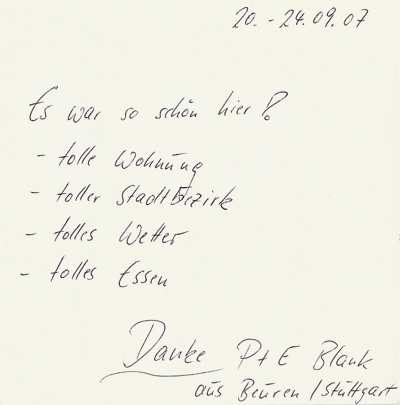 20. - 24.09.07
Es war so schön hier!
- tolle Wohnung
- toller Stadtbezirk
- tolles Wetter
- tolles Essen
Danke P + E Blank
aus Beuren / Stuttgart